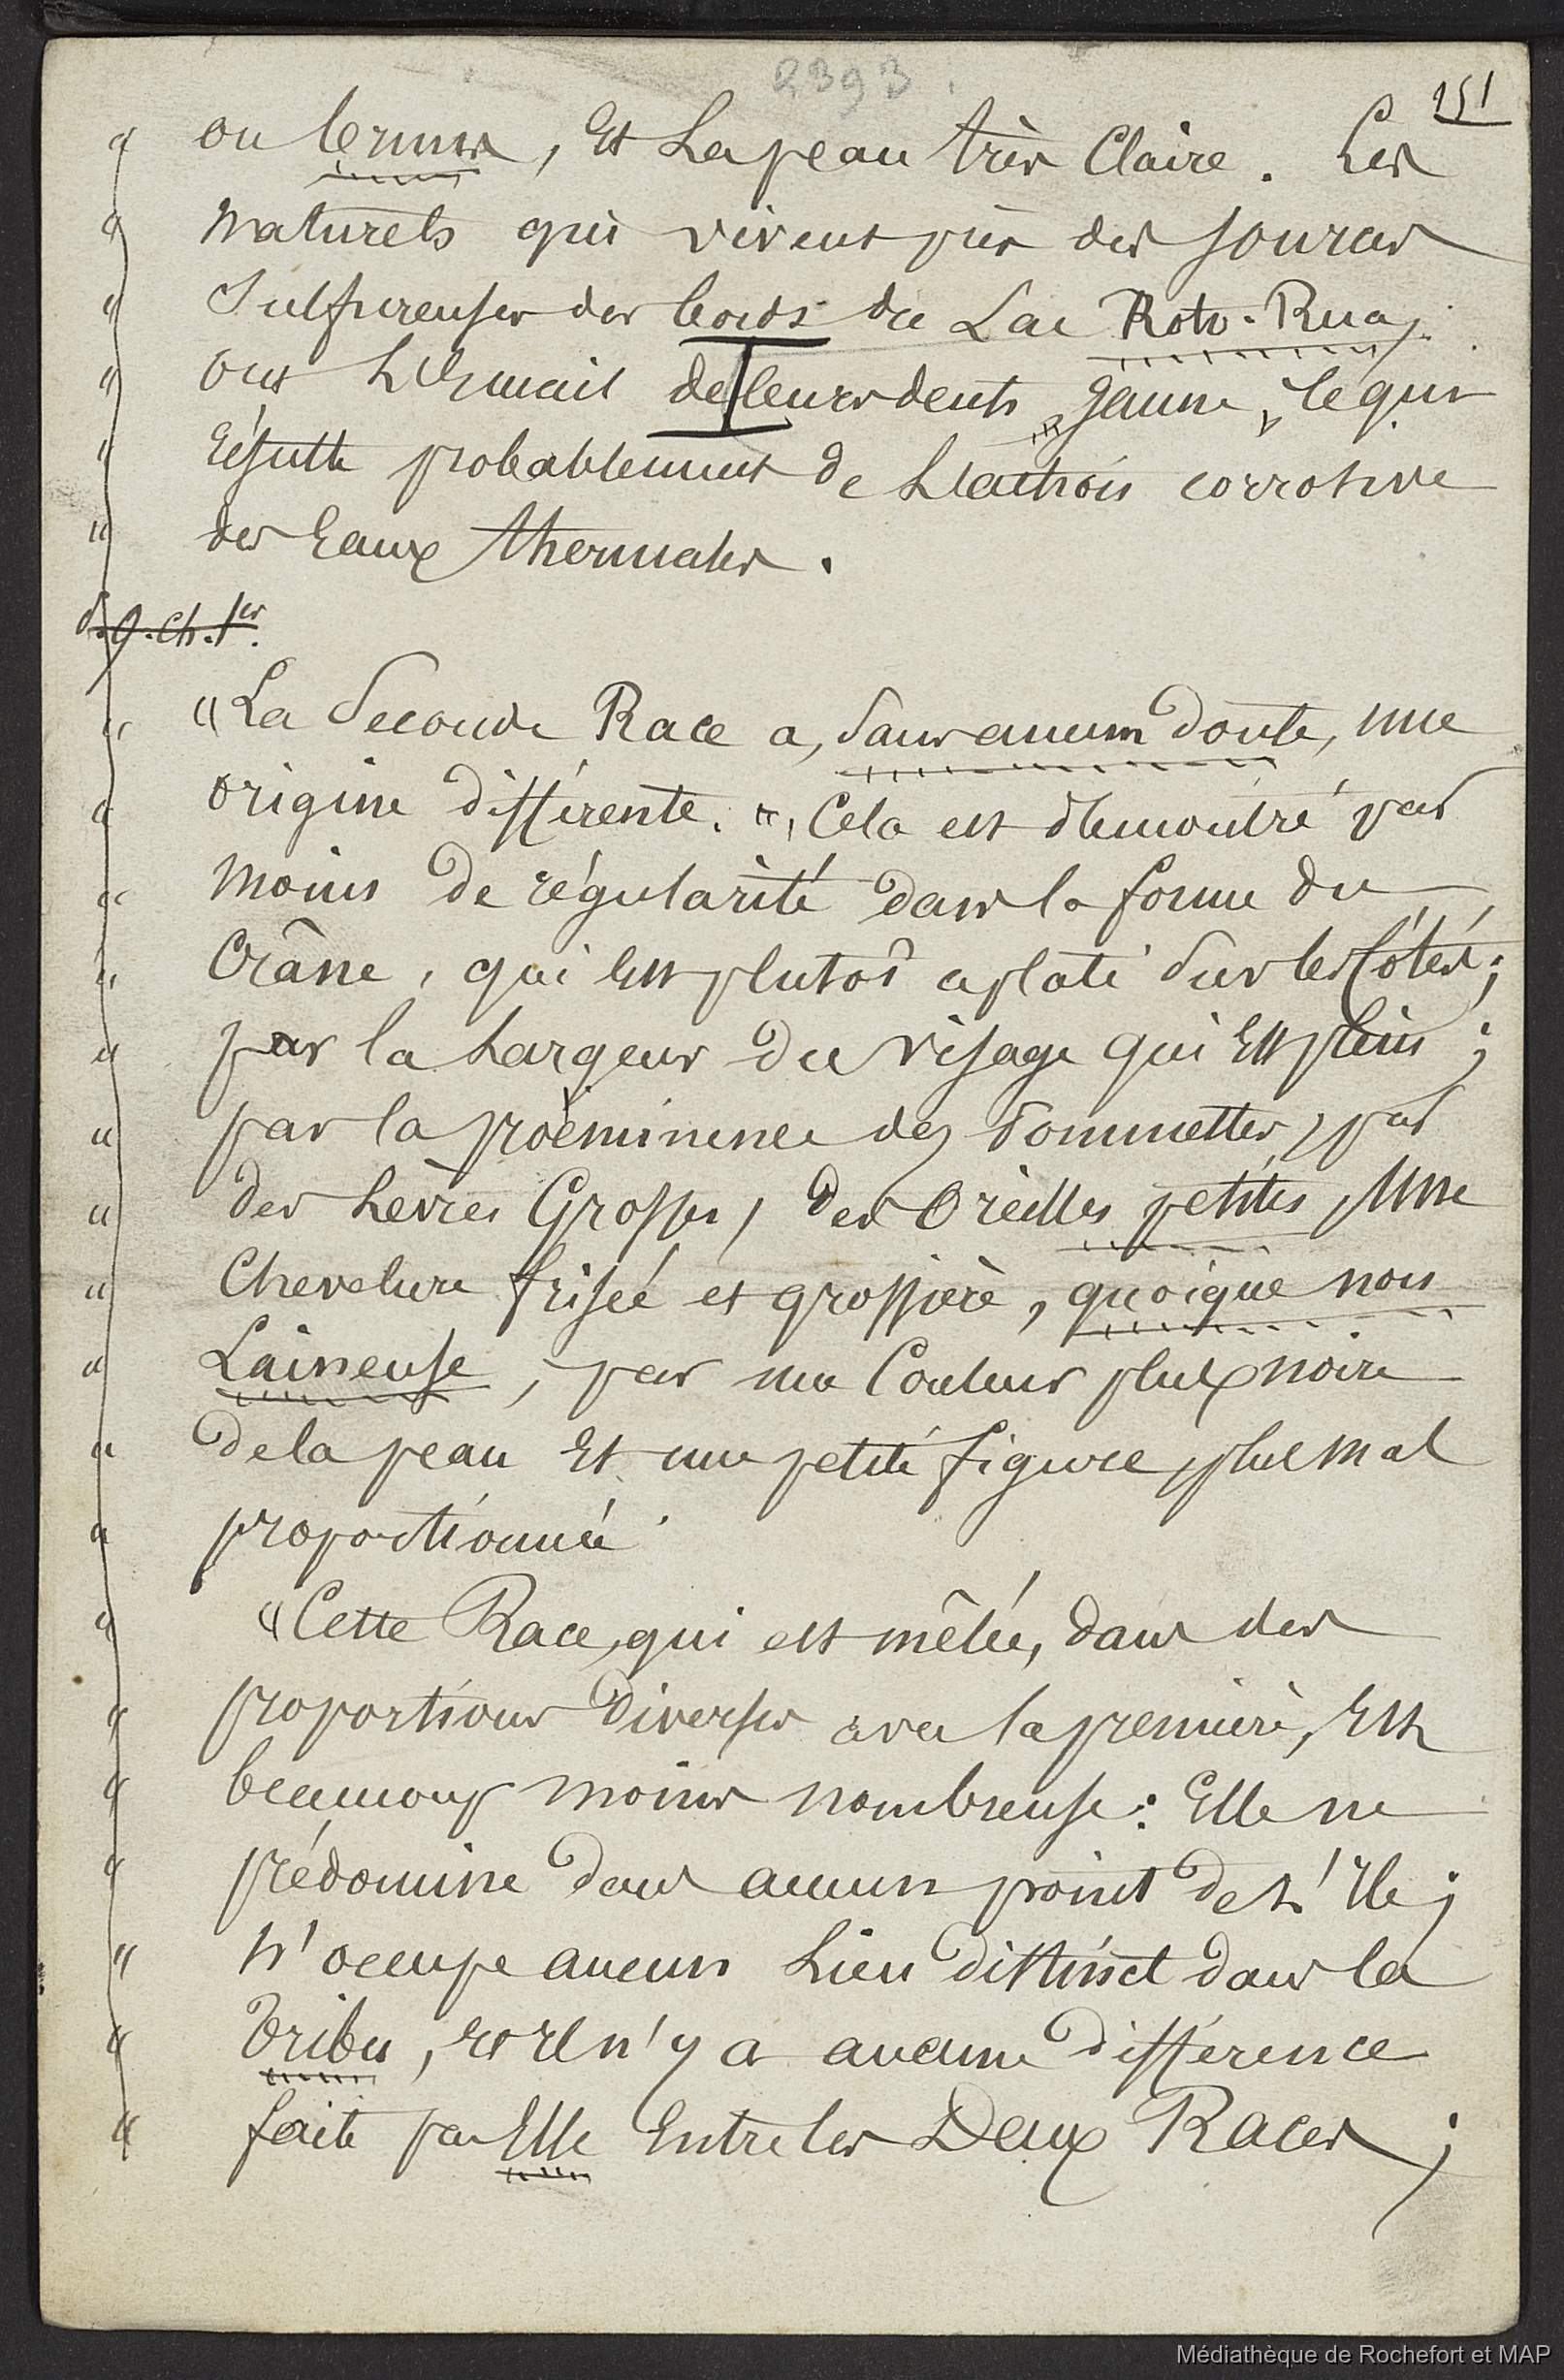 2393.
151
" ou bruns, Et La peau très Claire. Les
" Naturels qui vivent près des sources
" Sulfureuses des bords du Lac Roto-Rua,
" ont L'Email de leurs dents jaune, ce qui
" résulte probablement de L'action corrosive
" des Eaux thermales.
d. 9. Ch. 1er.
" "La Seconde Race a, sans aucun doute, une
" origine différente. ", Cela est démontré par
" moins de régularité dans la forme du
" Crâne, qui Est plutôt aplati sur les Côtés;
" par la Largeur du visage qui Est plein;
" par la proéminence des pommettes, par
" des Lèvres Grosses, des Oreilles petites, Une
" Chevelure frisée et grossière, quoique non
" Laineuse, par une Couleur plus noire
" de la peau Et une petite figure, plus mal
" proportionnée.
" "Cette Race, qui est mêlée, dans des
" proportions diverses avec la première, Est
" beaucoup moins nombreuse: Elle ne
" prédomine dans aucun point de L'Ile;
" N'occupe aucun Lieu distinct dans la
" Tribu, et Il n'y a aucune différence
" faite par Elle Entre les Deux Races;
Médiathèque de Rochefort et MAP